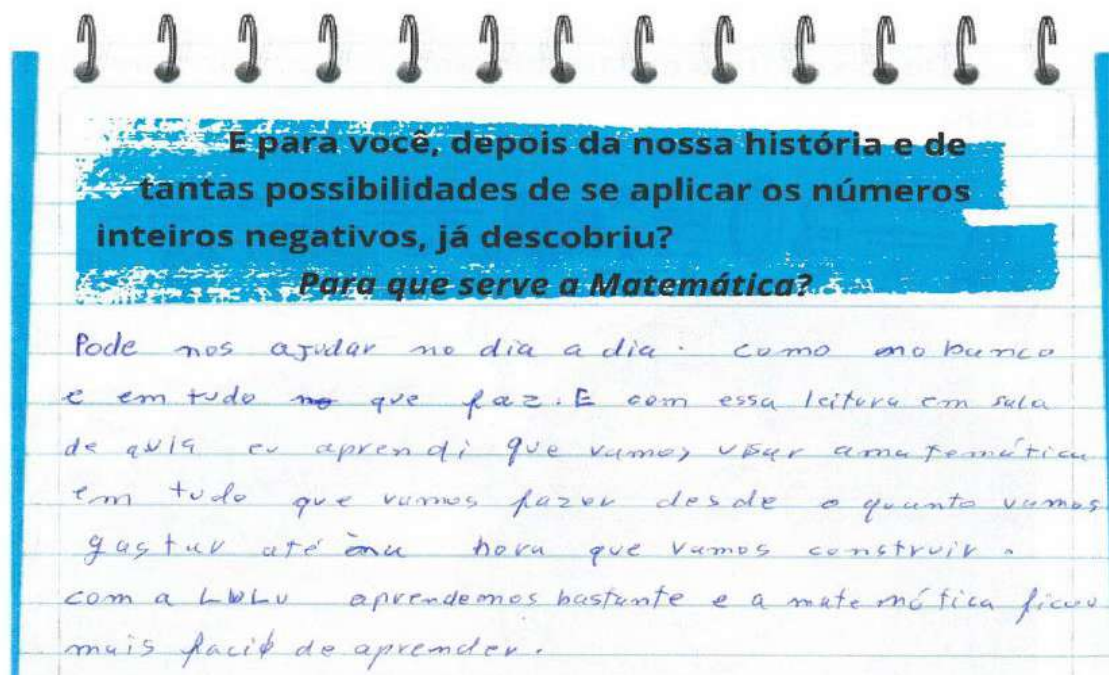 E para você, depois da nossa história e de
tantas possibilidades de se aplicar os números
inteiros negativos, já descobriu?
Para que serve a Matemática?
Pode nos ajudar no dia a dia. como no banco
e em tudo que faz. E com essa leitura em sala
de aula eu aprendi que vamos usar a matemática
em tudo que vamos fazer desde o quanto vamos
gastar até na hora que vamos construir.
com a LULU aprendemos bastante e a matemática ficou
mais facil de aprender.